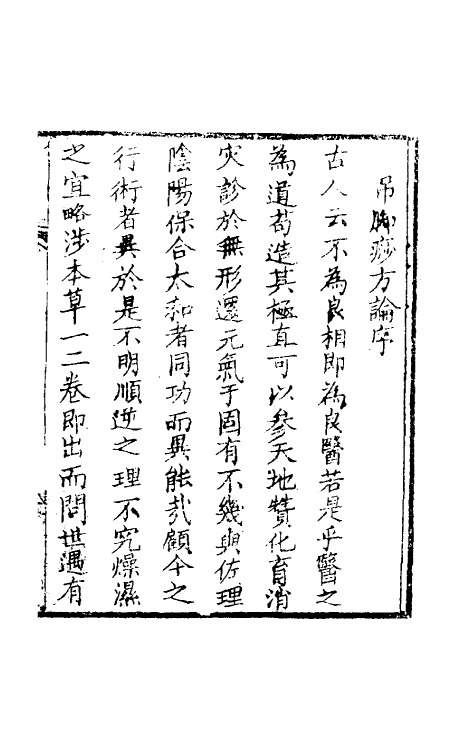 吊脚痧方論序
古人云不為良相即為良醫若是乎醫之
為道苟造其極直可以參天地贊化育消
灾診於無形還元氣于固有不幾與佐理
陰陽保合太和者同功而異能哉顧今之
行術者異於是不明順逆之理不究燥濕
之宜略涉本草一二卷即出而問世遇有